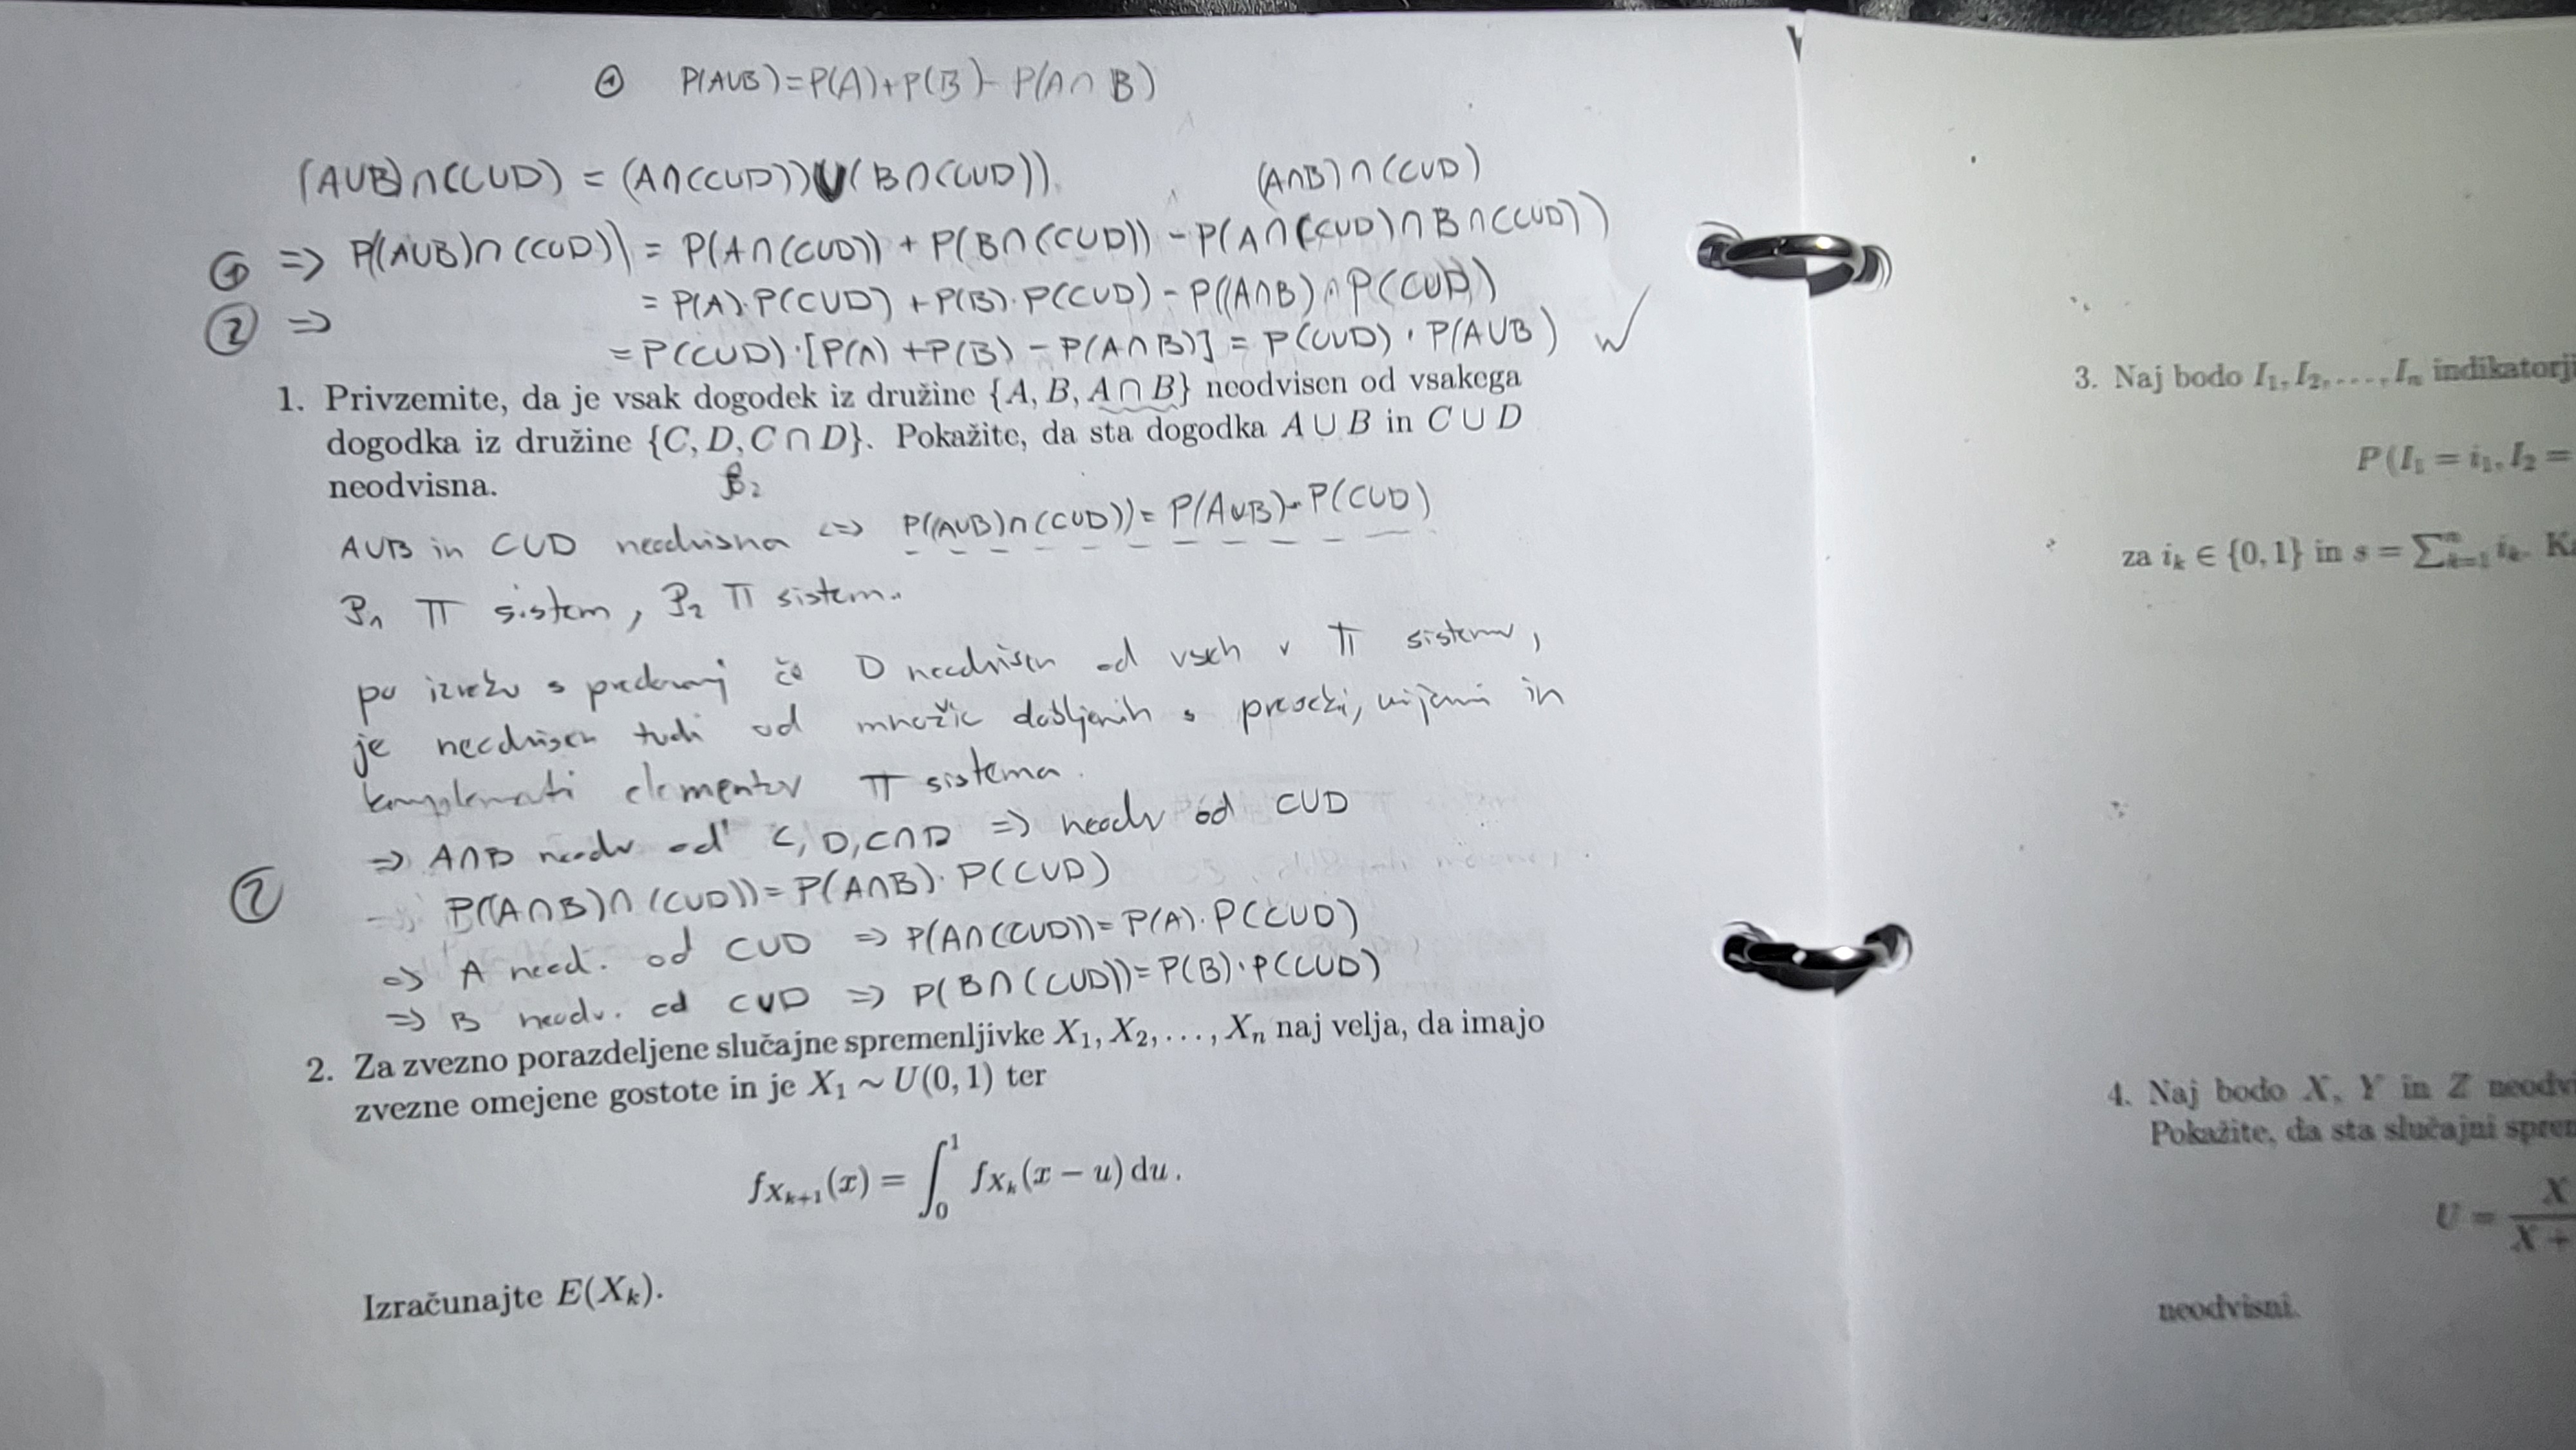 ① P(A∪B)=P(A)+P(B)-P(A∩B)
(A∩B)∩(C∪D)
(A∪B)∩(C∪D) = (A∩(C∪D))∪(B∩(C∪D)).
① => P((A∪B)∩(C∪D)) = P(A∩(C∪D)) + P(B∩(C∪D)) - P(A∩(C∪D)∩B∩(C∪D))
= P(A)·P(C∪D) + P(B)·P(C∪D) - P((A∩B)∩P(C∪D))
② => = P(C∪D)·[P(A)+P(B)-P(A∩B)] = P(C∪D)·P(A∪B)
1. Privzemite, da je vsak dogodek iz družine {A, B, A ∩ B} neodvisen od vsakega
dogodka iz družine {C, D, C ∩ D}. Pokažite, da sta dogodka A ∪ B in C ∪ D
neodvisna.
A∪B in C∪D neodvisna <=> P((A∪B)∩(C∪D)) = P(A∪B)·P(C∪D)
π sistem, π sistem.
po izreku s predavanj če D neodvisen od vseh v π sistemu,
je neodvisen tudi od množic dobljenih s preseki, unijami in
komplementi elementov π sistema.
=> A∩B neodv od C, D, C∩D => neodv od C∪D
② P((A∩B)∩(C∪D)) = P(A∩B)·P(C∪D)
=> A neod. od C∪D => P(A∩(C∪D)) = P(A)·P(C∪D)
=> B neodv. od C∪D => P(B∩(C∪D)) = P(B)·P(C∪D)
2. Za zvezno porazdeljene slučajne spremenljivke X₁, X₂, ..., Xₙ naj velja, da imajo
zvezne omejene gostote in je X₁ ~ U(0, 1) ter
f_{X_{k+1}}(x) = ∫₀¹ f_{X_k}(x − u) du.
Izračunajte E(X_k).
3. Naj bodo I₁, I₂, ..., Iₙ indikatorji
P(I₁ = i₁, I₂ =
za i_k ∈ {0, 1} in s = ∑ⁿ_{k=1} i_k.
4. Naj bodo X, Y in Z
Pokažite, da sta slučajni
U = X / X +
neodvisni.